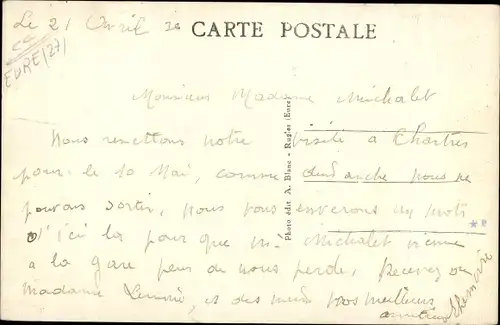 Le 21 Avril
CARTE POSTALE
EURE (27)
Monsieur Madame Michalet
Nous remettons notre visite a Chartres
pour le 10 Mai, comme nous ne
pouvons sortir, nous vous enverons un mot
d'ici la pour que Mr Michalet vienne
a la gare peur de nous perdre, Recevez
Madame et des vos meilleurs
amities
Photo édit A. Blanc - Rugles (Eure)